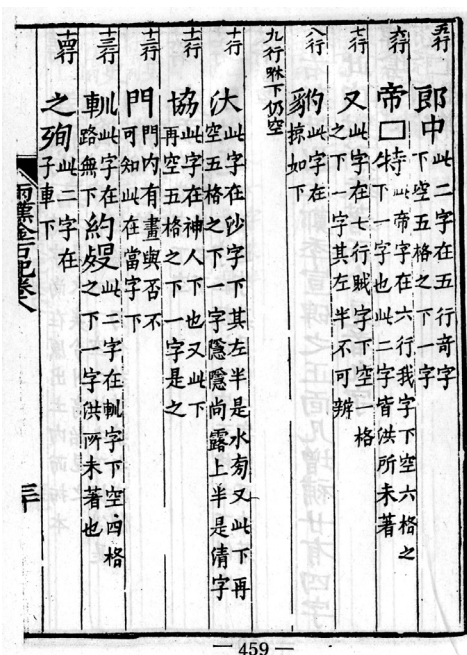 五行 郎中此二字在五行竒字下空五格之下一字
六行 帝□特此帝字在六行我字下空六格之下一字也此二字皆洪所未著
七行 又此字在七行賊字下空一格之下一字其左半不可辨
八行 豹此字在掠如下
九行眎下仍空
十行 汏此字在沙字下其左半是水旁又此下再空五格之下一字隱隱尚露上半是倩字
十一行 協此字在神人下也又此下再空五格之下一字是之
十二行 門門内有畫與否不可知此在當字下
十三行 䡅此字在路無下約嫚此二字在䡅字下空四格之下一字洪所未著也
十四行 之殉此二字在子車下
兩漢金石記卷八
三
—459—